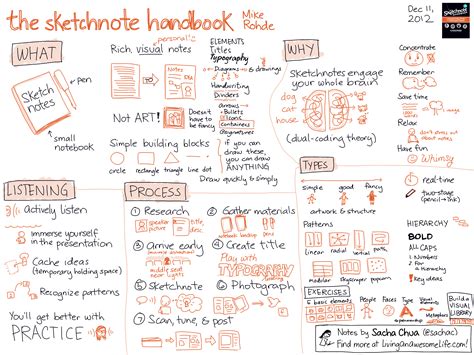 the sketchnote handbook
Mike
Rohde
Dec 11,
2012
WHAT
Sketch
notes
pen
small
notebook
personal
Rich, visual notes
ELEMENTS
Titles
Typography
Diagrams & drawings
Handwriting
Dividers
arrows
Bullets
Icons
Containers
Signatures
Not ART!
Doesn't
have to
be fancy
Simple building blocks
circle rectangle triangle line dot
if you can
draw these,
you can draw
ANYTHING
Draw quickly & simply
WHY
Sketchnotes engage
your whole brain
dog
cat
house
(dual-coding theory)
Concentrate
Remember
Save time
Relax
don't stress out
about notes
Have fun
Whimsy
LISTENING
Actively listen
Immerse yourself
in the presentation
Cache ideas
(temporary holding space)
Recognize patterns
You'll get better with
PRACTICE
PROCESS
1 Research
speaker
picture
title,
desc.
2 Gather materials
3 Arrive early
middle seat
4 Create title
Play with
TYPOGRAPHY
5 Sketchnote
6 Photograph
7 Scan, tune, & post
TYPES
simple good fancy
artwork & structure
real-time
two-stage
(pencil→ink)
Patterns
linear radial vertical path
modular skyscraper popcorn
HIERARCHY
BOLD
ALL CAPS
1 Numbers
2 For
a Hierarchy
Key ideas
EXERCISES
5 basic elements
People Faces Type Visual
elements
Metaphors
Build a
VISUAL
LIBRARY
Notes by Sacha Chua (@sachac)
Find more at LivingAnAwesomeLife.com